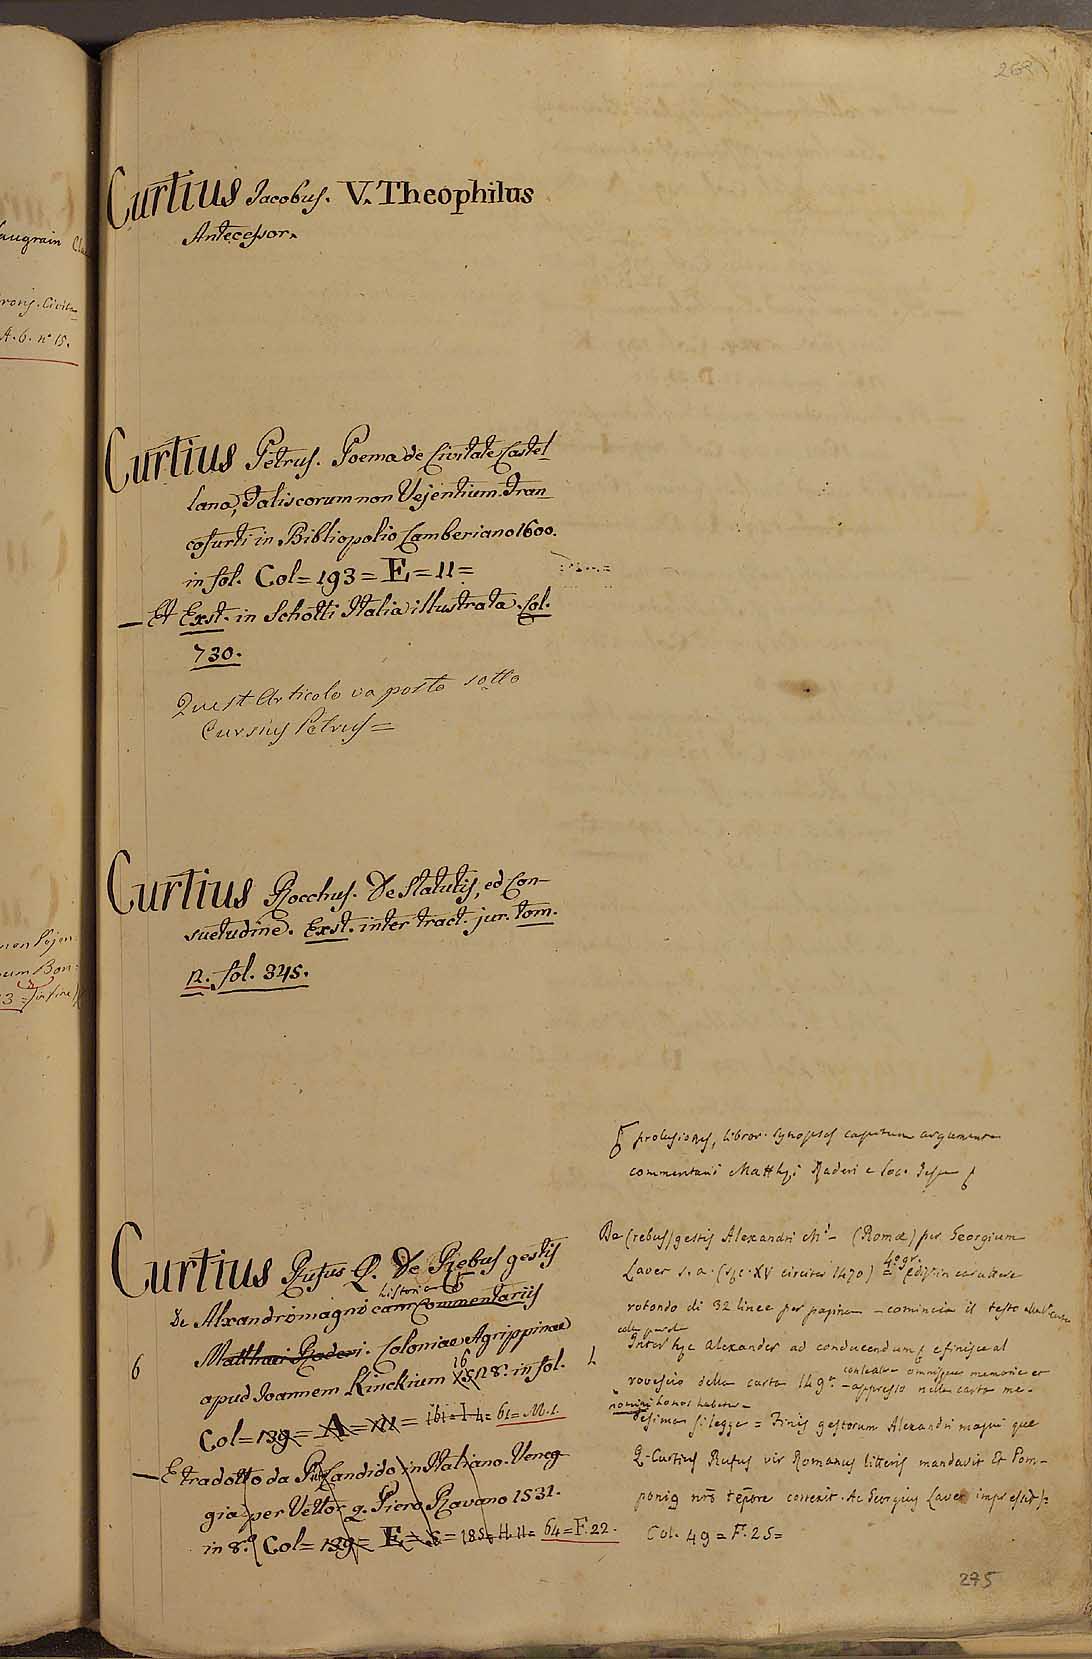 269
Curtius Jacobus. V. Theophilus
Antecessor.
augrain
A. 6. n° 15.
Curtius Petrus. Poema de Civitate Castel_
lana, Faliscorum non Vejentium. Fran_
cofurti in Bibliopolio Camberiano 1600.
in fol. Col = 193 = E = 11 =
— Et Exst. in Schotti Italia illustrata. Col.
730.
Quest Articolo va posto sotto
Cursius Petrus =
Curtius Rocchus. De Statutis, ed Con-
suetudine. Exst. inter tract. jur. tom.
2. fol. 345.
prolusiones, libror. Synopses capitum argumenta
commentarii Matthei Raderi e Soc. Jesu
Curtius Rufus Q. De Rebus gestis
Historia
De Alexandro magno cum Commentariis
6 Matthaei Raderi. Coloniae Agrippinae
apud Joannem Kinckium 16 28. in fol.
Col = 139 = A = XII = 161 = I 4 = 61 = M. 1.
— E tradotto da P. Candido in Italiano. Veneg
gia per Vettor q. Piero Ravano 1531.
in 8.° Col = 139 = E = S = 185 = H. 11 = 64 = F. 22.
De (rebus) gestis Alexandri M.i — (Romæ) per Georgium
Laver s. a. (sec. XV circiter 1470) = 4° gr. ediz. in carattere
rotondo di 32 linee per pagina — comincia il testo
Inter hec Alexander ad conducendum e finisce al
rovescio della carta 149
— appresso nella carta me-
desima si legge = Finis gestorum Alexandri magni que
Q. Curtius Rufus vir Romanus litteris mandavit Et Pom-
ponig nrō tēpore correxit. Ac Georgius Laver impressit =
Col. 49 = F. 25 =
275